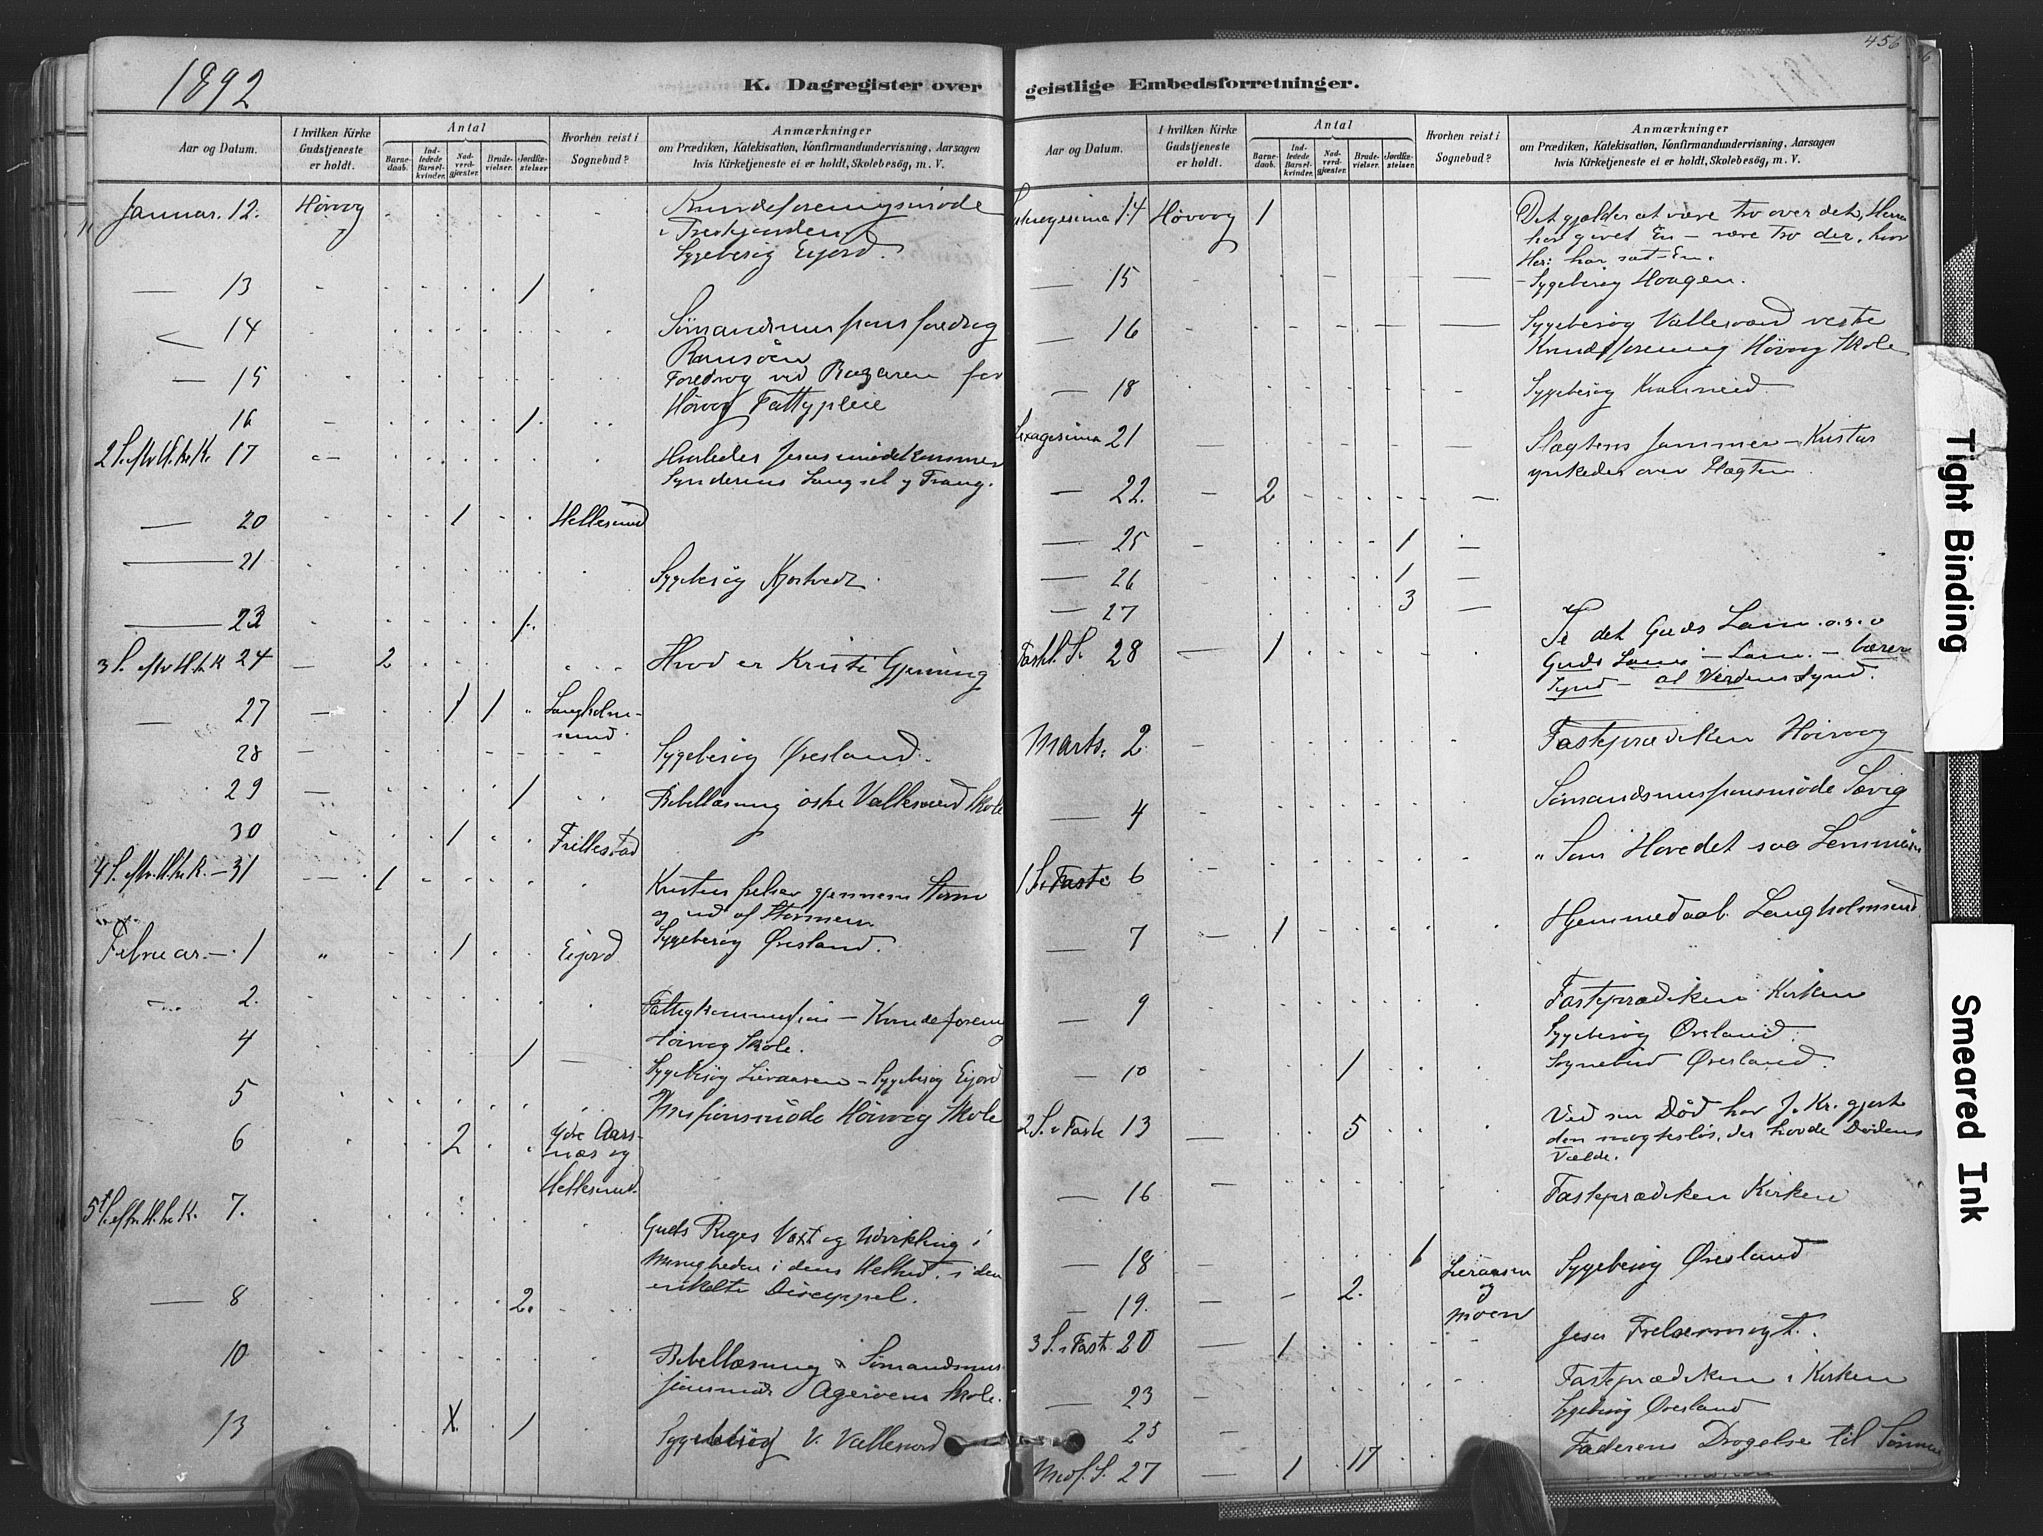 456
1892
K. Dagregister over geistlige Embedsforretninger.
Aar og Datum.
I hvilken Kirke Gudstjeneste er holdt.
Antal
Barnedaab.
Indledede Barselkvinder.
Nadverdgjæster.
Brudevielser.
Jordfæstelser.
Hvorhen reist i Sognebud?
Anmærkninger
om Prædiken, Katekisation, Konfirmandundervisning, Aarsagen
hvis Kirketjeneste ei er holdt, Skolebesög, m. V.
Januar. 12. Höivog Kvindeforeningsmöde
i
Sygebesög Eijord.
— 13 1
14 Sömandsmissionsforedrag
Ramsöen
— 15 Foredrag ved Bazaren for
Höivog Fattigpleie
16 1.
2 S. eftr H. tr. K. 17 Hvorledes Jesus imödekommer
Synderens Længsel og Trang.
— 20 1 Hellesund
— 21 Sygebesög Kjostvedt.
— 23 1.
3 S. eftr H. tr. K 24 — 2 Hvad er Kristi Gjerning
— 27 — 1 1 Langholm-
sund.
28 — Sygebesög Øresland.
29 — 1 Bibellæsning östre Vallesværd Skole
30 1 Frillestad
4 S. eftr. H. tr. K. — 31 — 1 Kristus frelser gjennem Storm
og ud af Stormen.
Februar. — 1 " 1 Eijord Sygebesög Øresland.
2. Fattigkommission — Kvindeforening
Höivog Skole.
4 1 — Sygebesög Lieraasen — Sygebesög Eijord
5 Missionsmöde Höivog Skole
6 2 Ydre Aars-
næs og
Hellesund.
5 S. eftr. H. tr. K. 7. Guds Riges Vext og Udvikling i
Menigheden i dens Helhed, i den
enkelte Discippel.
— 8 2.
10 Bibellæsning & Sömandsmis-
sionsmöde Ageröens Skole.
13 X. 1 Sygebesög V. Vallesværd
K. Dagregister over geistlige Embedsforretninger.
Aar og Datum.
I hvilken Kirke Gudstjeneste er holdt.
Antal
Barnedaab.
Indledede Barselkvinder.
Nadverdgjæster.
Brudevielser.
Jordfæstelser.
Hvorhen reist i Sognebud?
Anmærkninger
om Prædiken, Katekisation, Konfirmandundervisning, Aarsagen
hvis Kirketjeneste ei er holdt, Skolebesög, m. V.
14 Höivog 1 Det gjælder at være tro over det, Herren
har givet En — være tro der, hvor
Her: har sat En.
— 15 Sygebesög Haagen.
— 16 Sygebesög Vallesværd vestre
Kvindeforening Höivog Skole
— 18 Sygebesög
Sexagesima 21 — Slægtens Jammer — Kristus
ynkedes over Slægten.
— 22. — 2
— 25 1 —
— 26 1 —
— 27 3 —
Fastel. S. 28 — 1 Se det Guds Lam o. s. v
Guds Lam — Lam — bærer
Synd — al Verdens Synd.
Marts. 2 Fasteprædiken Höivog
— 4 Sömandsmissionsmöde Sævig
1 S. i Faste 6 "Som Hovedet saa Lemmerne
— 7 — 1 Hjemmedaab. Langholmsund.
— 9 Fasteprædiken Kirken
Sygebesög Øresland.
— 10 1 Sognebud Øresland.
2 S. i Faste 13 — 5 Ved sin Död har J. Kr. gjort
den magteslös, der havde Dödens
Vælde.
— 16 Fasteprædiken Kirken
— 18 1 Sygebesög Øresland
— 19. — 2. Lieraasen
og
Moen
3 S. i Fast. 20 — 1 Jesu Frelsermagt.
— 23 — Fasteprædiken i Kirken
Sygebesög Øresland
— 25 —
Midf. S. 27 — 1 17 Faderens Dragelse til Sönnen
Tight Binding
Smeared Ink